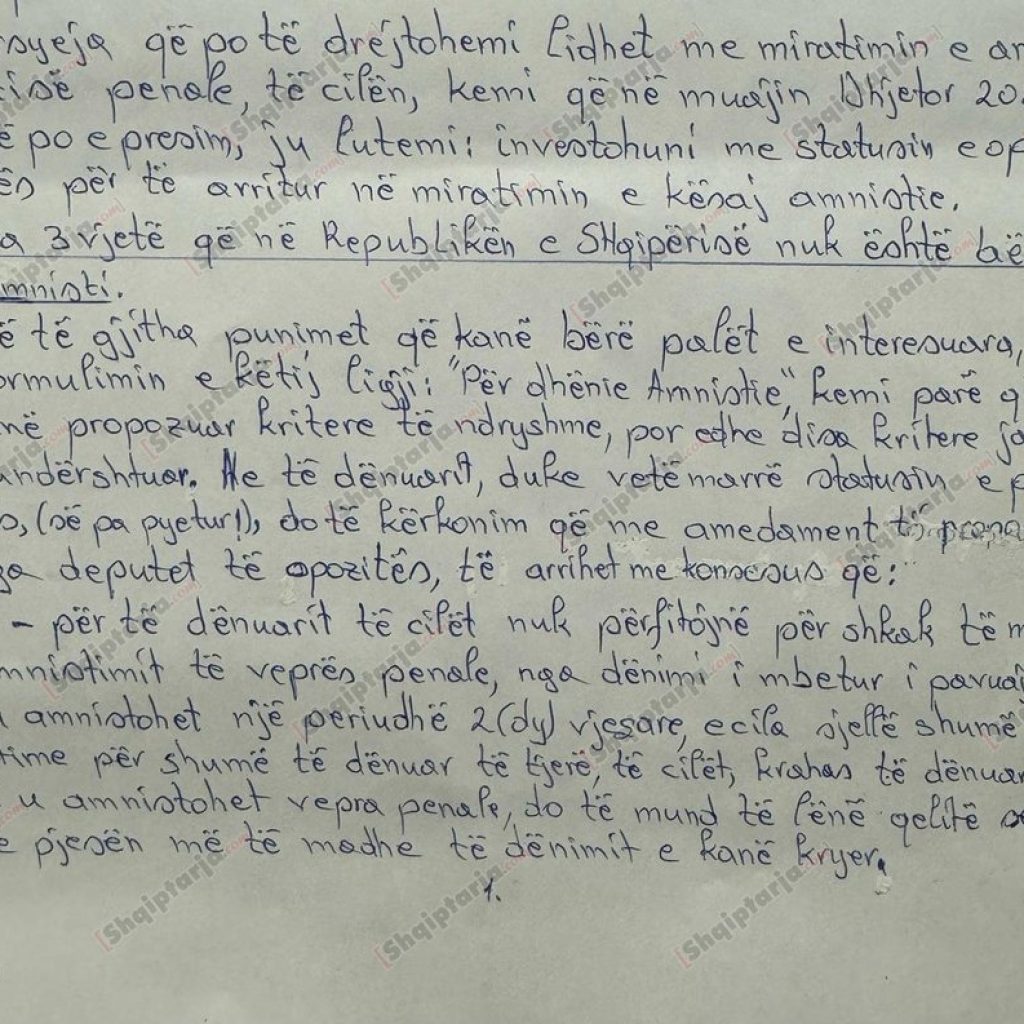 rsyeja që po të drejtohemi lidhet me miratimin e am
tisë penale, të cilën, kemi që në muajin Dhjetor 20
ë po e presim, ju lutemi: investohuni me statusin e op
ës për të arritur në miratimin e kësaj amnistie.
a 3 vjetë që në Republikën e SHqipërisë nuk është bë
mnisti.
ë të gjitha punimet që kanë bërë palët e interesuara,
ormulimin e këtij ligji: "Për dhënie Amnistie", kemi parë q
në propozuar kritere të ndryshme, por edhe disa kritere ja
ndërshtuar. Ne të dënuarit, duke vetëmarrë statusin e p
s, (së pa pyetur!), do të kërkonim që me amedament të propo
ga deputet të opozitës, të arrihet me konsesus që:
- për të dënuarit të cilët nuk përfitojnë për shkak të m
mnistimit të veprës penale, nga dënimi i mbetur i pavuaj
u amnistohet një periudhë 2(dy) vjesare, e cila sjellë shumë
time për shumë të dënuar të tjerë, të cilët, krahas të dënuar
i u amnistohet vepra penale, do të mund të lënë qelitë
e pjesën më të madhe të dënimit e kanë kryer.
1.
[Shqiptarja.com]